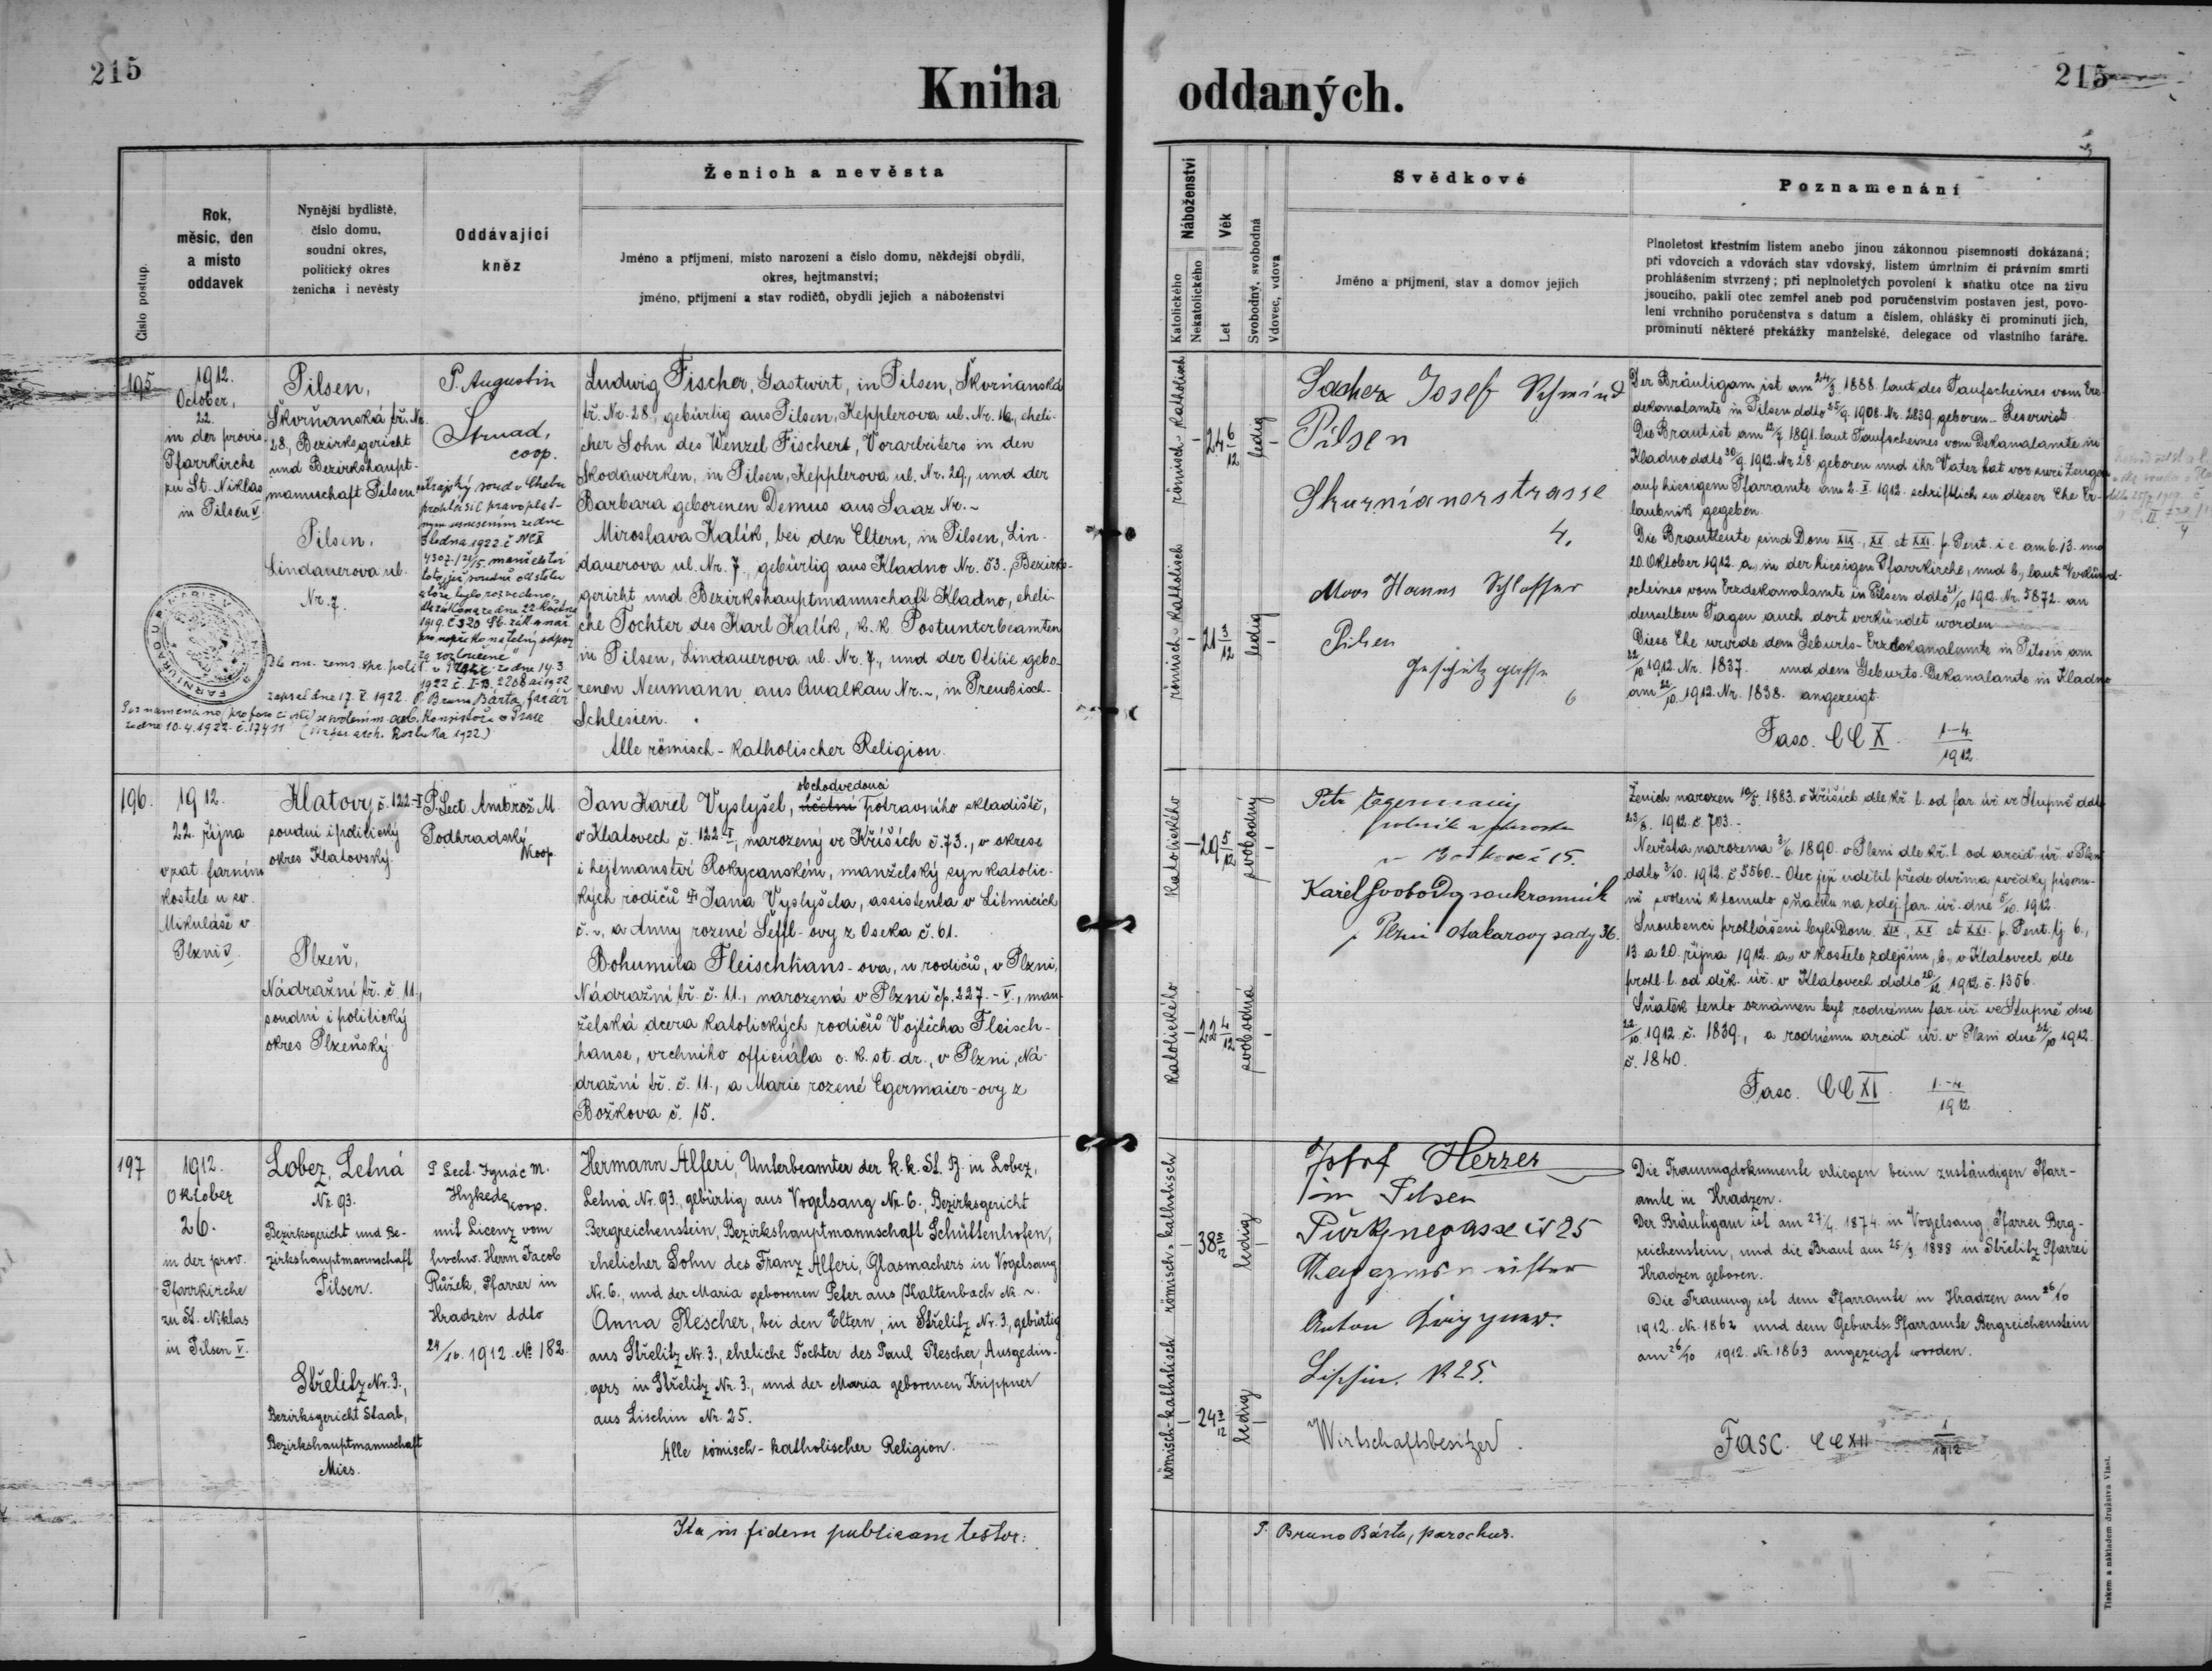 215
Kniha
Číslo postup.
Rok,
měsíc, den
a místo
oddavek
Nynější bydliště,
číslo domu,
soudní okres,
politický okres
ženicha i nevěsty
Oddávající
kněz
Ženich a nevěsta
Jméno a příjmení, místo narození a číslo domu, někdejší obydlí,
okres, hejtmanství;
jméno, příjmení a stav rodičů, obydlí jejich a náboženství
195
1912.
October,
22.
in der provis.
Pfarrkirche
zu St. Niklas
in Pilsen V.
Pilsen,
Škorňanská tř. Nr.
28, Bezirksgericht
und Bezirkshaupt-
mannschaft Pilsen
Pilsen.
Lindauerova ul.
Nr. 7.
P. Augustin
Strnad,
coop.
Krajský soud v Chebu
prohlásil pravoplat-
ným usnesením ze dne
manželství
zapsal dne 17. V. 1922. P. Bruno Bárta, farář
ze dne 10.4.1922 č. 17411
Ludwig Fischer, Gastwirt, in Pilsen, Škorňanská
tř. Nr. 28, gebürtig aus Pilsen, Kepplerova ul. Nr. 16, eheli-
cher Sohn des Wenzel Fischert, Vorarbeiters in den
Skodawerken, in Pilsen, Kepplerova ul. Nr. 29, und der
Barbara geborenen Demus aus Saaz Nr. ~
Miroslava Kalík, bei den Eltern, in Pilsen, Lin-
dauerova ul. Nr. 7., gebürtig aus Kladno Nr. 53., Bezirks-
gericht und Bezirkshauptmannschaft Kladno, eheli-
che Tochter des Karl Kalík, k.k. Postunterbeamten
in Pilsen, Lindauerova ul. Nr. 7., und der Otilie gebo-
renen Neumann aus Qualkau Nr. ~, in Preußisch-
Schlesien.
Alle römisch-katholischer Religion.
196.
1912.
22. října
v zat. farním
kostele u sv.
Mikuláše v
Plzni V.
Klatovy č. 122-I
soudní i politický
okres Klatovský.
Plzeň,
Nádražní tř. č. 11.,
soudní i politický
okres Plzeňský.
P. Lect. Ambrož M.
Podhradský
koop.
obchodvedoucí
Jan Karel Vyslyšel, účetní Potravního skladiště,
v Klatovech č. 122-I, narozený ve Kříších č. 73., v okrese
i hejtmanství Rokycanském, manželský syn katolic-
kých rodičů † Jana Vyslyšela, assistenta v Litmicích
č. ~, a Anny rozené Šeffl-ovy z Oseka č. 61.
Bohumila Fleischhans-ova, u rodičů, v Plzni,
Nádražní tř. č. 11., narozená v Plzni čp. 227.-V., man-
želská dcera katolických rodičů Vojtěcha Fleisch-
hanse, vrchního officiála c. k. st. dr., v Plzni, Ná-
dražní tř. č. 11., a Marie rozené Egermaier-ovy z
Božkova č. 15.
197
1912.
Oktober
26.
in der prov.
Pfarrkirche
zu St. Niklas
in Pilsen V.
Lobez, Letná
Nr. 93.
Bezirksgericht und Be-
zirkshauptmannschaft
Pilsen.
Střelitz Nr. 3.,
Bezirksgericht Staab,
Bezirkshauptmannschaft
Mies.
P. Lect. Ignác M.
Hykede
koop.
mit Licenz vom
hochw. Herrn Jacob
Růžek, Pfarrer in
Hradzen ddto
24/10. 1912. No 182.
Hermann Alferi, Unterbeamter der k.k. St. B. in Lobez,
Letná Nr. 93., gebürtig aus Vogelsang Nr. 6., Bezirksgericht
Bergreichenstein, Bezirkshauptmannschaft Schüttenhofen,
ehelicher Sohn des Franz Alferi, Glasmachers in Vogelsang
Nr. 6., und der Maria geborenen Peter aus Kaltenbach Nr. ~.
Anna Plescher, bei den Eltern, in Střelitz Nr. 3, gebürtig
aus Střelitz Nr. 3., eheliche Tochter des Paul Plescher, Ausgedin-
gers in Střelitz Nr. 3., und der Maria geborenen Krippner
aus Lischin Nr. 25.
Alle römisch-katholischer Religion.
Ita in fidem publicam testor:
oddaných.
215
Náboženství
Katolického
Nekatolického
Věk
Let
Svobodný, svobodná
Vdovec, vdova
Svědkové
Jméno a příjmení, stav a domov jejich
Poznamenání
Plnoletost křestním listem anebo jinou zákonnou písemností dokázaná;
při vdovcích a vdovách stav vdovský, listem úmrtním či právním smrti
prohlášením stvrzený; při neplnoletých povolení k sňatku otce na živu
jsoucího, pakli otec zemřel aneb pod poručenstvím postaven jest, povo-
lení vrchního poručenstva s datum a číslem, ohlášky či prominutí jich,
prominutí některé překážky manželské, delegace od vlastního faráře.
römisch-katholisch
24 6/12
ledig
römisch-katholisch
21 3/12
ledig
Sacher Josef
Pilsen
Skurnianerstrasse
4.
Moos Hanns Schlosser
Pilsen
6
Der Bräutigam ist am 24/3. 1888. laut des Taufscheines vom Erz-
dekanalamte in Pilsen ddto 25/9. 1908. Nr. 2839. geboren. Reservist.
Die Braut ist am 12/7. 1891. laut Taufscheines vom Dekanalamte in
Kladno ddto 30/9. 1912. Nr. 28. geboren und ihr Vater hat vor zwei Zeugen
auf hiesigem Pfarramte am 2. X. 1912. schriftlich zu dieser Ehe Er-
laubnis gegeben.
Die Brautleute sind Dom. XIX., XX. et XXI. p. Pent. i.e. am 6. 13. und
20. Oktober 1912. a, in der hiesigen Pfarrkirche, und b, laut Verkünd-
scheines vom Erzdekanalamte in Pilsen ddto 21/10 1912. Nr. 5872. an
denselben Tagen auch dort verkündet worden.
Diese Ehe wurde dem Geburts-Erzdekanalamte in Pilsen am
22/10 1912. Nr. 1837. und dem Geburts-Dekanalamte in Kladno
am 22/10. 1912. Nr. 1838. angezeigt.
Fasc. CCX. 1-4/1912.
katolického
29 5/12
svobodný
katolického
22 4/12
svobodná
Petr Egermaier
v Božkově č 15.
Karel Svoboda soukromník
v Plzni Otakarovy sady 36.
Ženich narozen 10/5. 1883. v Kříších dle kř. l. od far. úř. ve Stupně ddto
23/8. 1912. č. 703.-
Nevěsta narozena 3/6. 1890. v Plzni dle kř. l. od arcid. úř. v Plzni
ddto 3/10. 1912. č 5560.- Otec její udělil přede dvěma svědky písem-
ně svolení k tomuto sňatku na zdej. far. úř. dne 5/10. 1912.
Snoubenci prohlášeni byli Dom. XIX., XX. et XXI. p. Pent. tj. 6.,
13. a 20. října 1912. a, v kostele zdejším, b, v Klatovech dle
prohl. l. od děk. úř. v Klatovech ddto 1912. č. 1356.
Sňatek tento oznámen byl rodnému far. úř. ve Stupně dne
22/10. 1912. č. 1839., a rodnému arcid. úř. v Plzni dne 22/10 1912.
č. 1840.
Fasc. CCXI. 1-4/1912
römisch-katholisch
38 /12
ledig
römisch-katholisch
24 7/12
ledig
Josef Herzer
in Pilsen
Purkynegasse No 25
Anton
No 25.
Wirtschaftsbesitzer.
Die Trauungdokumente erliegen beim zuständigen Pfarr-
amte in Hradzen.
Der Bräutigam ist am 27/4. 1874. in Vogelsang, Pfarrei Berg-
reichenstein, und die Braut am 25/3. 1888 in Střelitz Pfarrei
Hradzen geboren.
Die Trauung ist dem Pfarramte in Hradzen am 26/10
1912. Nr. 1862 und dem Geburts-Pfarramte Bergreichenstein
am 26/10 1912. Nr. 1863 angezeigt worden.
Fasc. CCXII 1/1912
P. Bruno Bárta, parochus.
Tiskem a nákladem družstva Vlast.